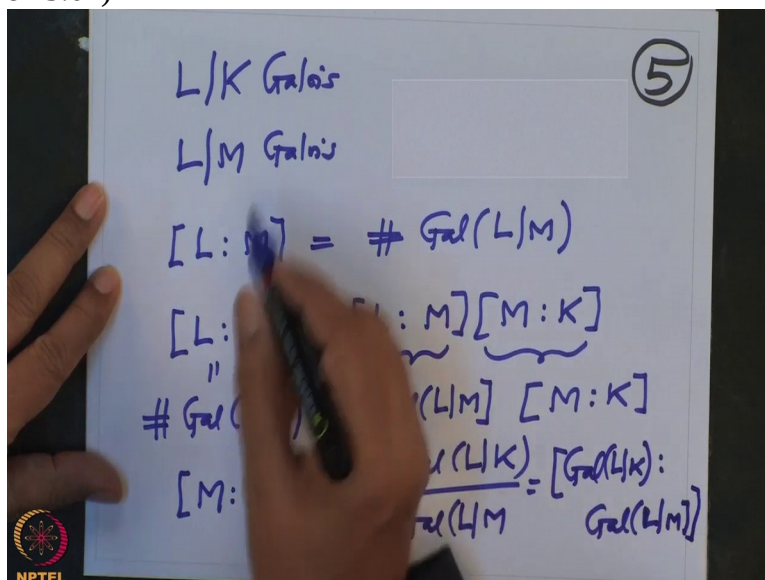 5
L|K Galois
L|M Galois
[L: M] = # Gal(L|M)
[L: : M] [M:K]
"
# Gal( (L|M] [M:K]
[M: (L|K) = [Gal(L|K):
Gal(L|M Gal(L|M)]
NPTEL